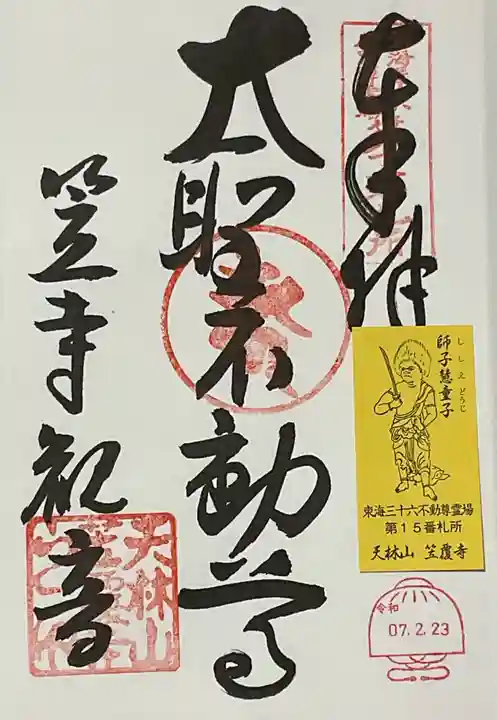 奉拝
大聖不動尊
笠寺観音
天林山
師子慧童子
ししえどうじ
東海三十六不動尊霊場
第15番札所
天林山 笠覆寺
令和
07.2.23